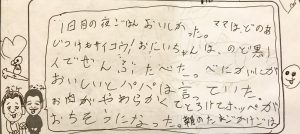 1日目の夜ごはんおいしかった。ママは、どのあ
じつけもサイコウ!おにいちゃんは、のど黒1
人でぜんぶたべた。べにがいしが
おいしいとパパは言っていた。
お肉がやわらかくてとろけてホッペが
おちそうになった。鯛のたれごまかけごは